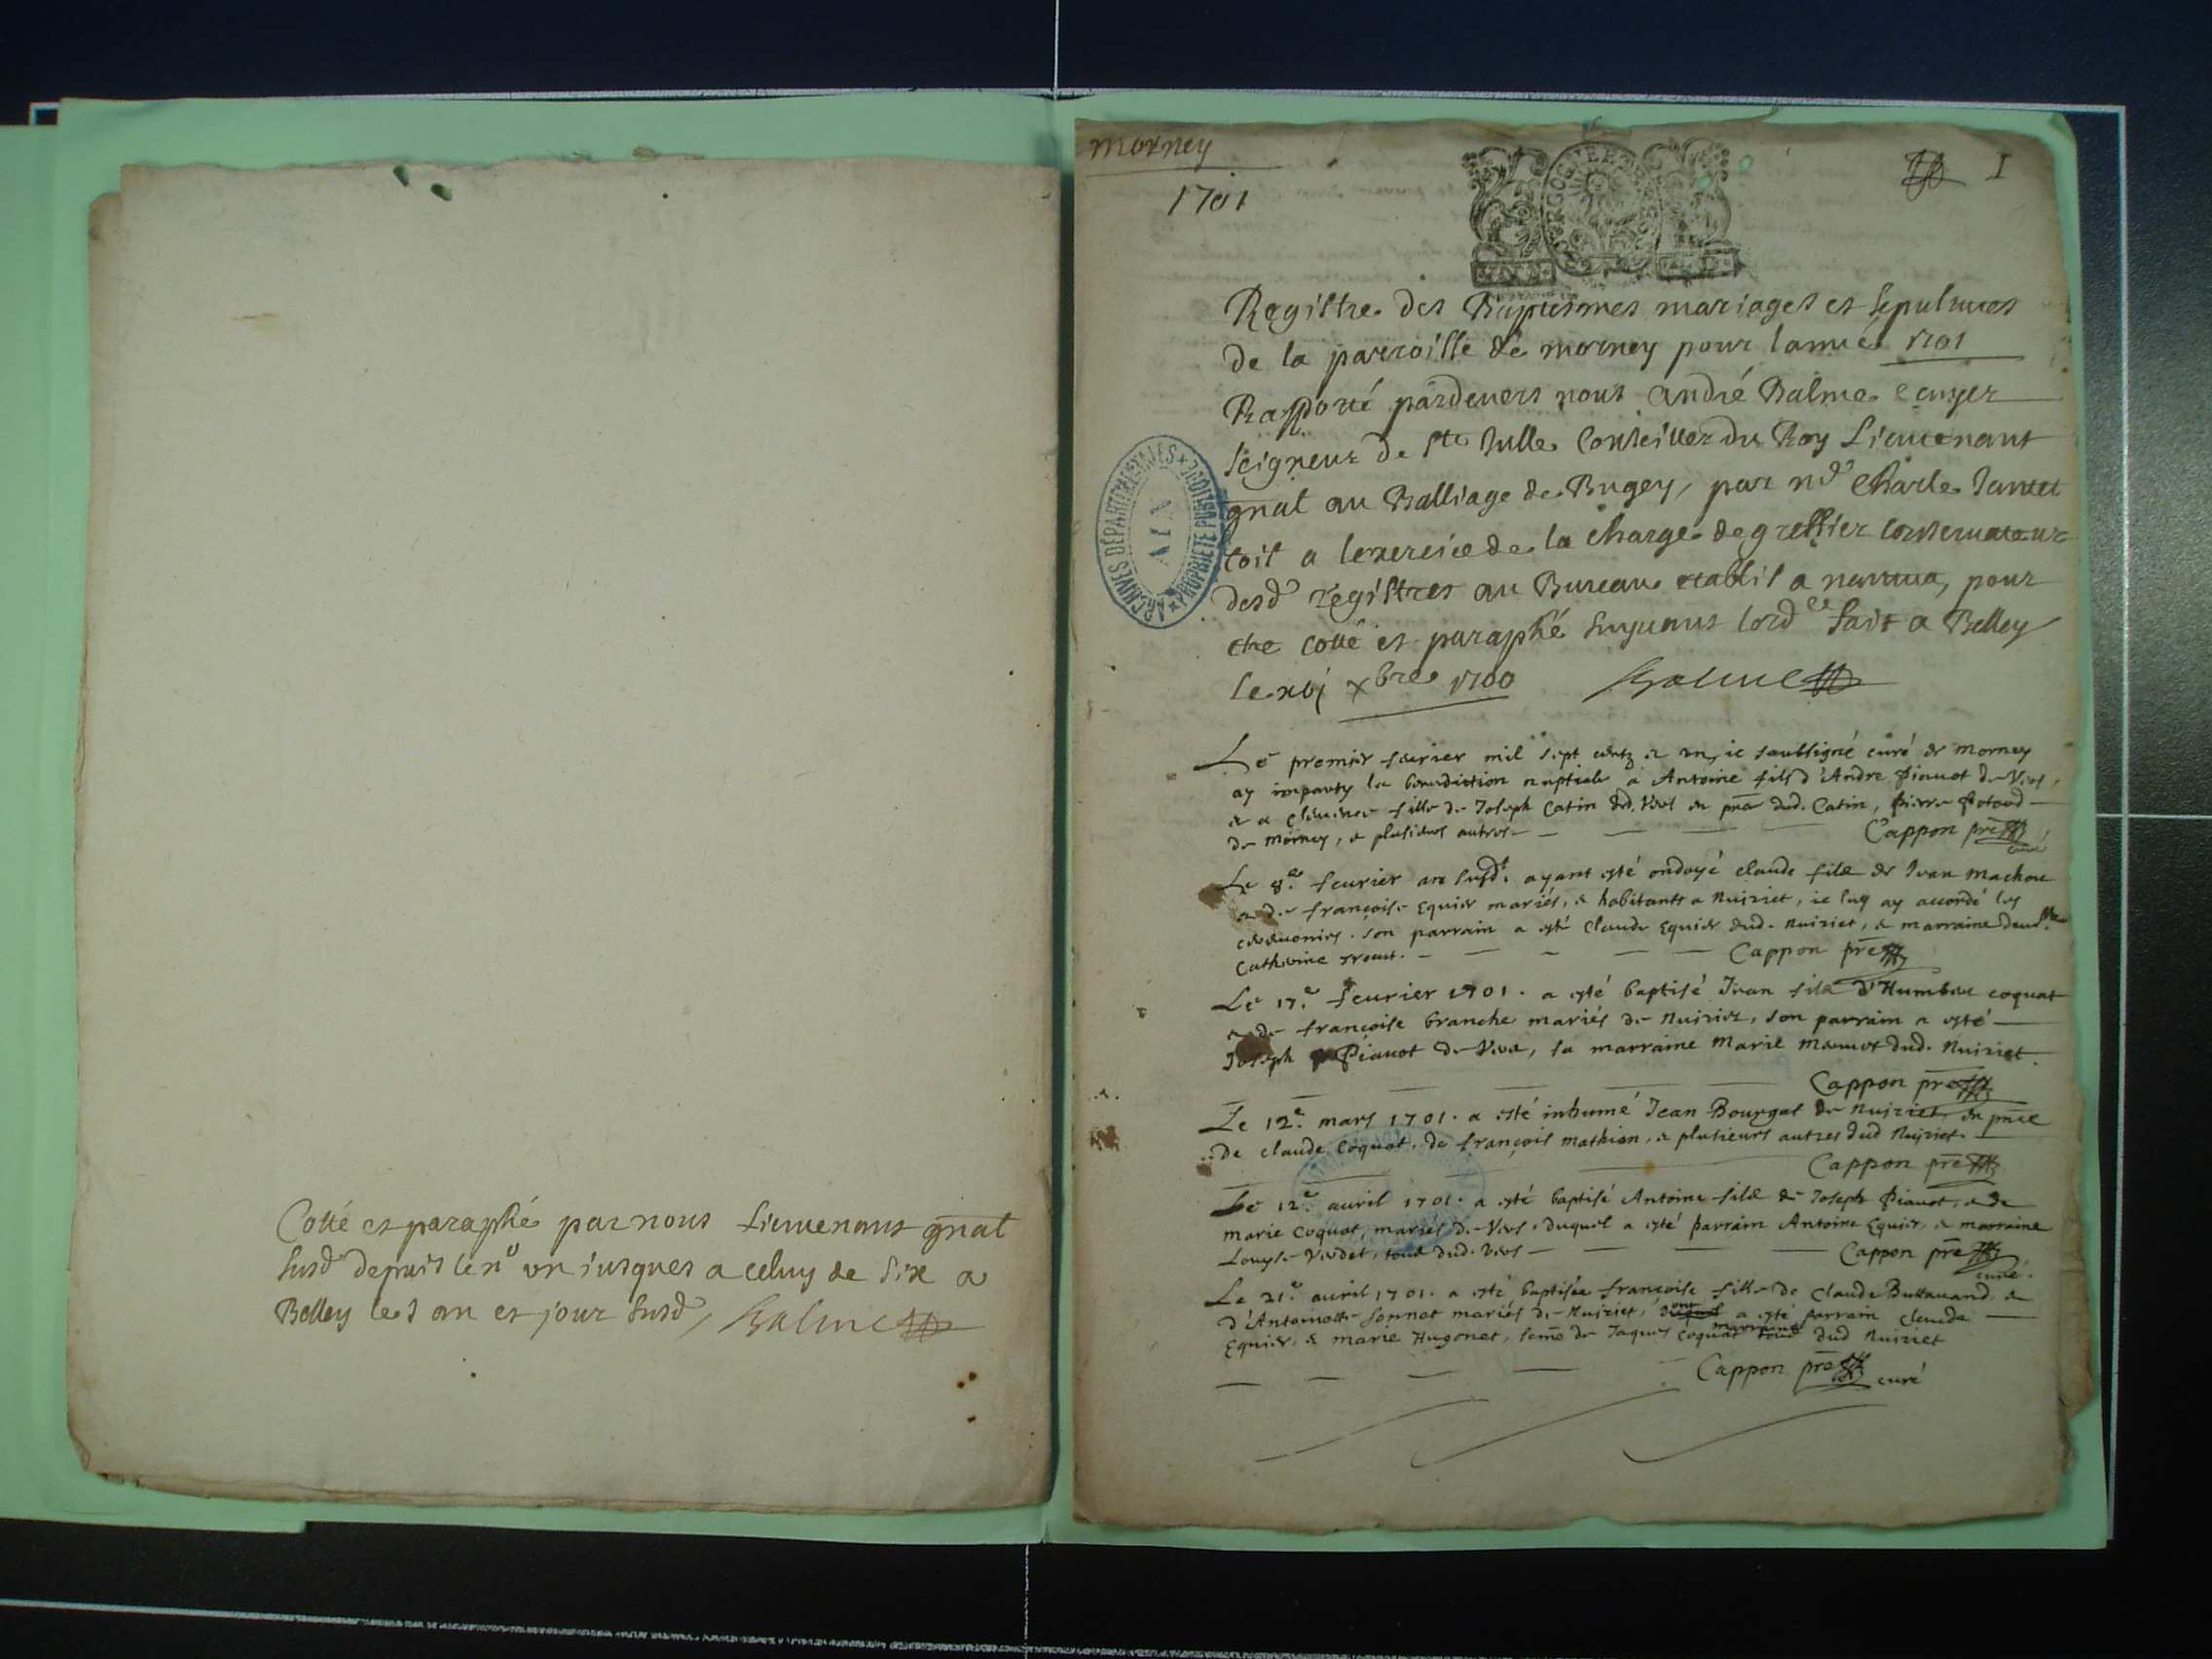 Cotté et paraphé par nous Lieutenant gnal
susd depuis le n° un jusques a celuy de six a
Belley les an et jour susd, Balme
morney
1701
I
Registre des Baptesmes mariages et sepultures
de la parroisse de morney pour lannée 1701
Rapporté pardevers nous André Balme ecuyer
seigneur de Ste Julle Conseiller du Roy Lieutenant
gnal au Balliage de Bugey, par Charle
a lexercice de la charge de greffier conservateur
desd registres au Bureau etablit a nantua, pour
etre cotté et paraphé suyuant lord ce fait a Belley
le xvj xbre 1700 Balme
ARCHIVES DÉPARTEMENTALES * PROPRIETE PUBLIQUE *
AIN
Le premier feurier mil sept centz & un, ie soubsigné curé de morney
ay imparty la benediction nuptiale a Antoine fils d'Andre Piauot de Vers,
& a Clemence fille de Joseph Catin dud. Vers en pnce dud. Catin, Pierre
de Morney, & plusieurs autres Cappon pre
curé
Le 8e feurier an susdt. ayant esté ondoyé claude fils de Jean machou
& de françoise Equier mariés, & habitants a Nuiriet, ie luy ay accordé les
ceremonies. son parrain a esté Claude Equier dud. Nuiriet, & marraine
Catherine Cappon pre
Le 17e feurier 1701. a esté baptisé Jean fils d'Humbert coquat
& de françoise branche mariés de Nuiriet, son parrain a esté
Joseph Piauot de Vers, sa marraine Marie dud. Nuiriet.
Cappon pre
Le 12e mars 1701. a esté inhumé Jean Bourgat de Nuiriet en pnce
de claude Coquat, de françois mathian, & plusieurs autres dud Nuiriet.
Cappon pre
Le 12e auril 1701. a esté baptisé Antoine fils de Joseph Piauot, & de
marie Coquat, mariés de Vers, duquel a esté parrain Antoine Equier, & marraine
Louyse Verdet, tous dud. Vers Cappon pre
curé.
Le 21e auril 1701. a esté baptisée françoise fille de Claude &
d'Antoinette Sonnet mariés de Nuiriet, dont a esté parrain claude
Equier, & marie Hugonet, feme de Jaques Coquat marraine dud Nuiriet
Cappon pre curé